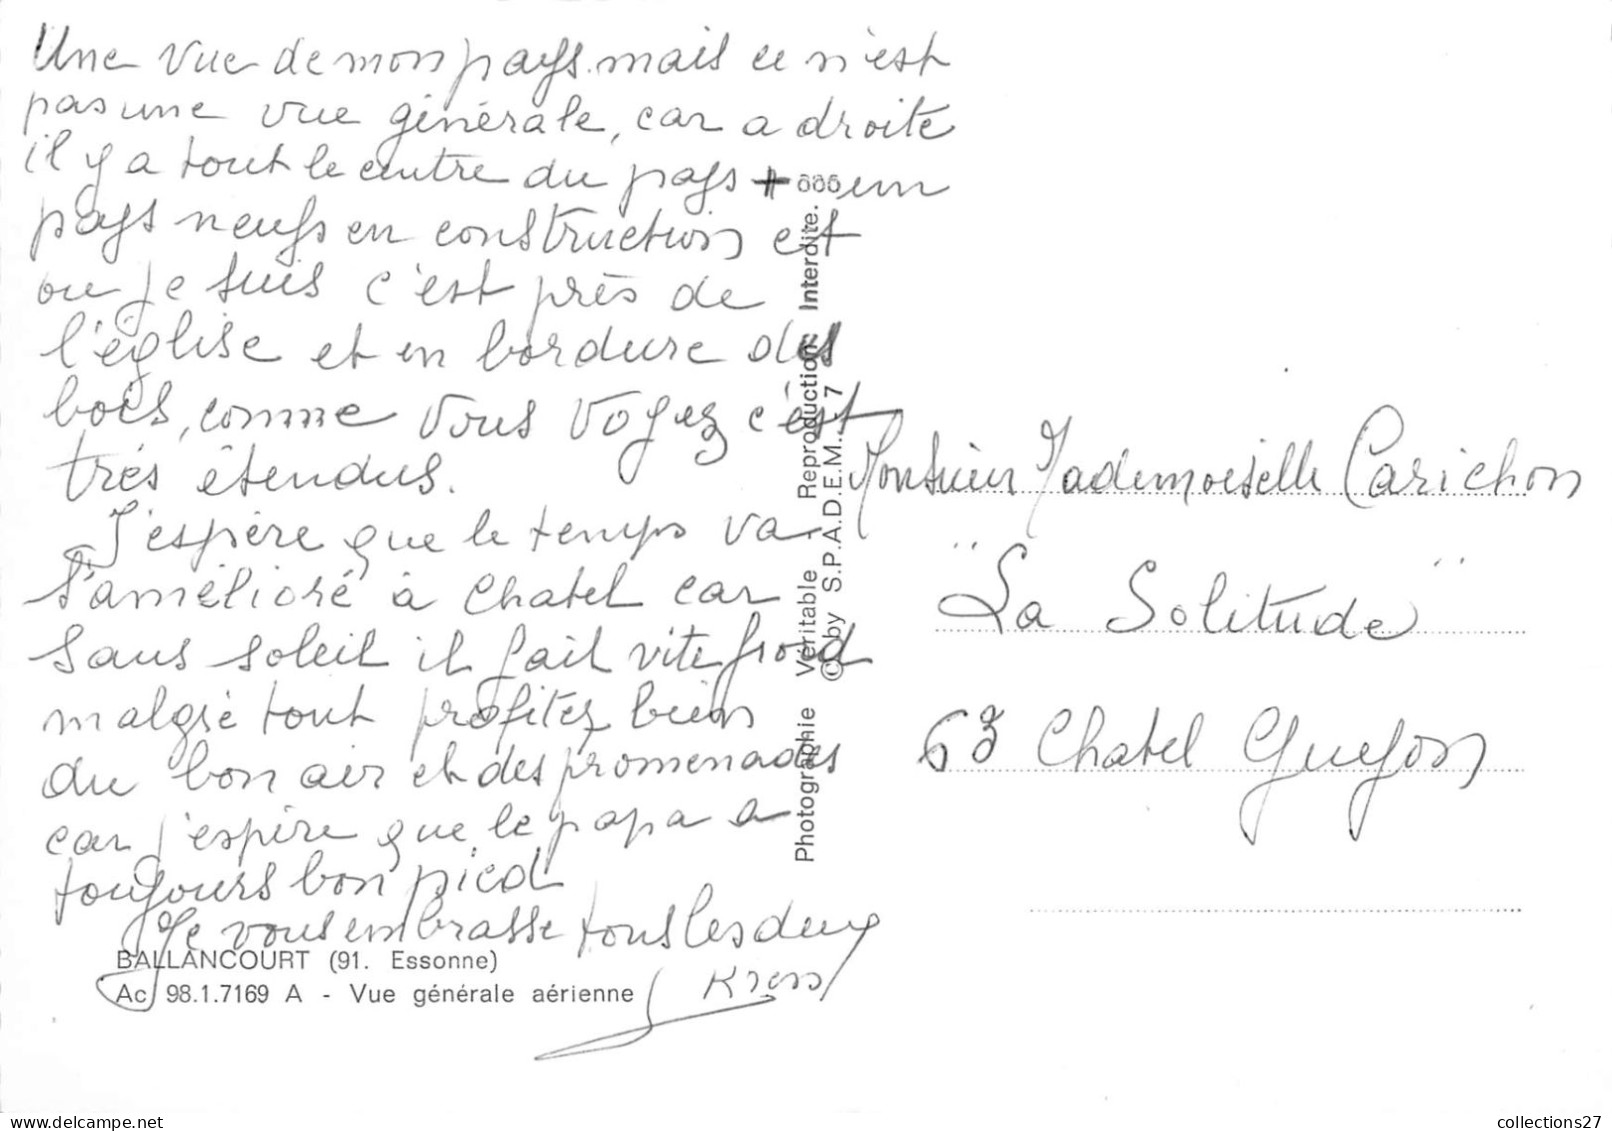 Une vue de mon pays mais ce n'est
pas une vue générale, car a droite
il y a tout le centre du pays + un
pays neufs en construction et
ou je suis c'est près de
l'église et en bordure des
bois, comme vous voyez c'est
très étendus.
J'espère que le temps va
s'amélioré à Chatel car
sans soleil il fait vite froid
malgré tout profitez bien
du bon air et des promenades
car j'espère que le papa a
toujours bon pied
Je vous embrasse tous les deux
BALLANCOURT (91. Essonne)
Ac 98.1.7169 A - Vue générale aérienne
Photographie Véritable Reproduction Interdite.
© by S.P.A.D.E.M.
Monsieur Mademoiselle Carichon
"La Solitude"
63 Chatel Guyon
collections27